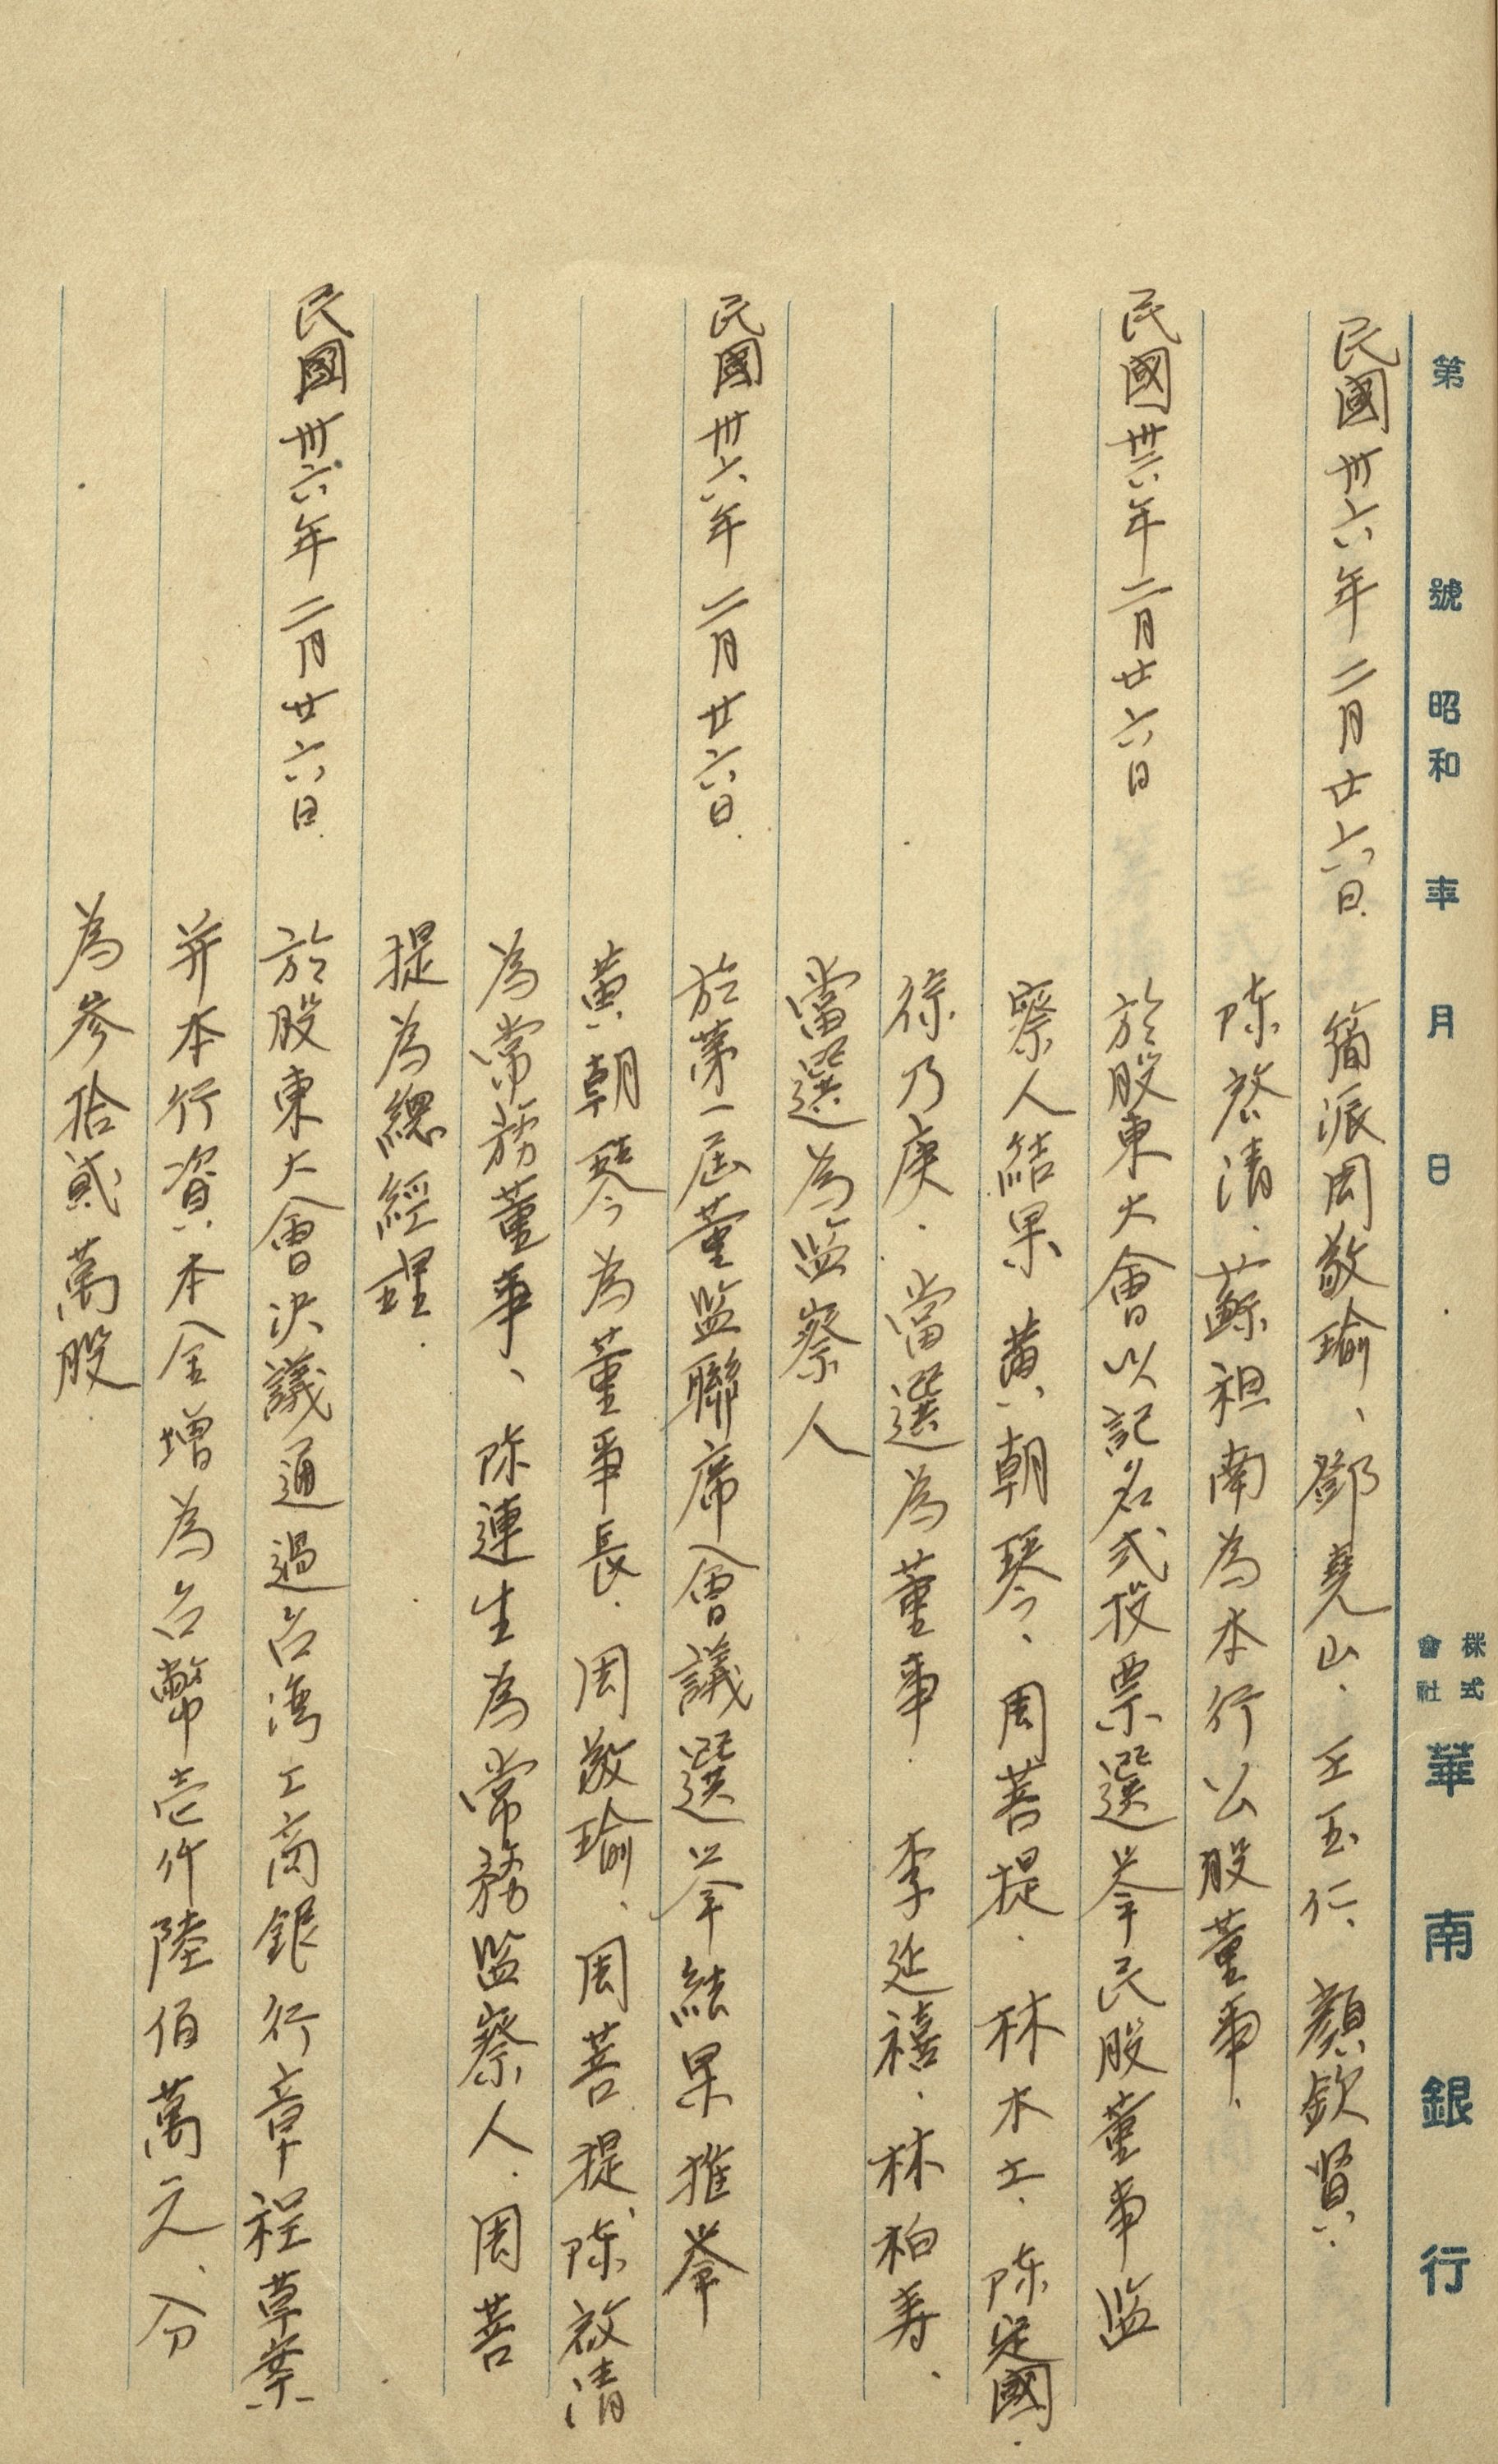 第 號 昭和 年 月 日 株式會社 華南銀行
民國卅六年二月廿六日 簡派周敬瑜、鄧堯山、王玉仁、顏欽賢、
陳啓清、蘇祖南為本行公股董事、
民國卅六年二月廿六日 於股東大會以記名式投票選举民股董事监
察人結果黄朝琴、周菩提、林木土、陈定國、
徐乃庚、當選為董事、李延禧、林柏寿、
當選為监察人
民國卅六年二月廿六日 於苐一屆董监聯席會議選举結果推举
黄朝琴為董事長、周敬瑜、周菩提、陈啟清
為常務董事、陈連生為常務监察人、周菩
提為總經理、
民國卅六年二月廿六日 於股東大會决議通過台湾工商銀行章程草案
并本行資本金增為台幣壱仟陸佰萬元、分
為参拾貳萬股